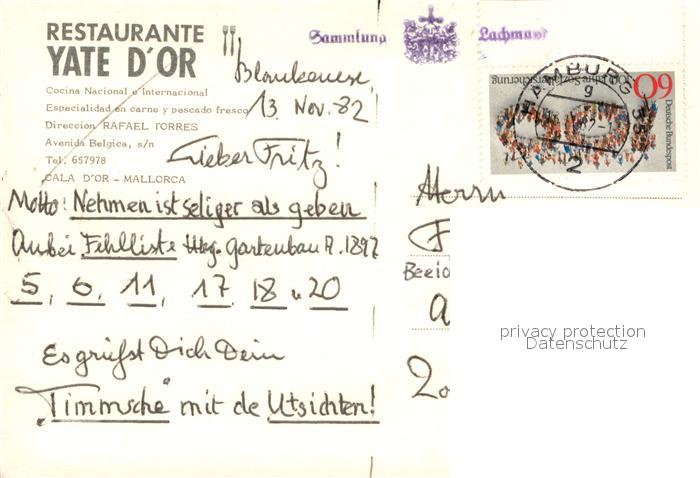 RESTAURANTE
YATE D'OR
Cocina Nacional e Internacional
Especialidad en carne y pescado fresco
Direccion RAFAEL TORRES
Avenida Belgica, s/n
Tel. 657978
CALA D'OR - MALLORCA
Sammlung Lachmund
Blankenese,
13. Nov. 82
Lieber Fritz!
Motto: Nehmen ist seliger als geben
Anbei Fehlliste Hbg. Gartenbau A. 1897
5, 6, 11, 17, 18 u 20
Es grüßt Dich Dein
"Timmsche" mit de Utsichten!
Herrn
F
2
HAMBURG
60
100 Jahre Sozialversicherung
Deutsche Bundespost
privacy protection
Datenschutz